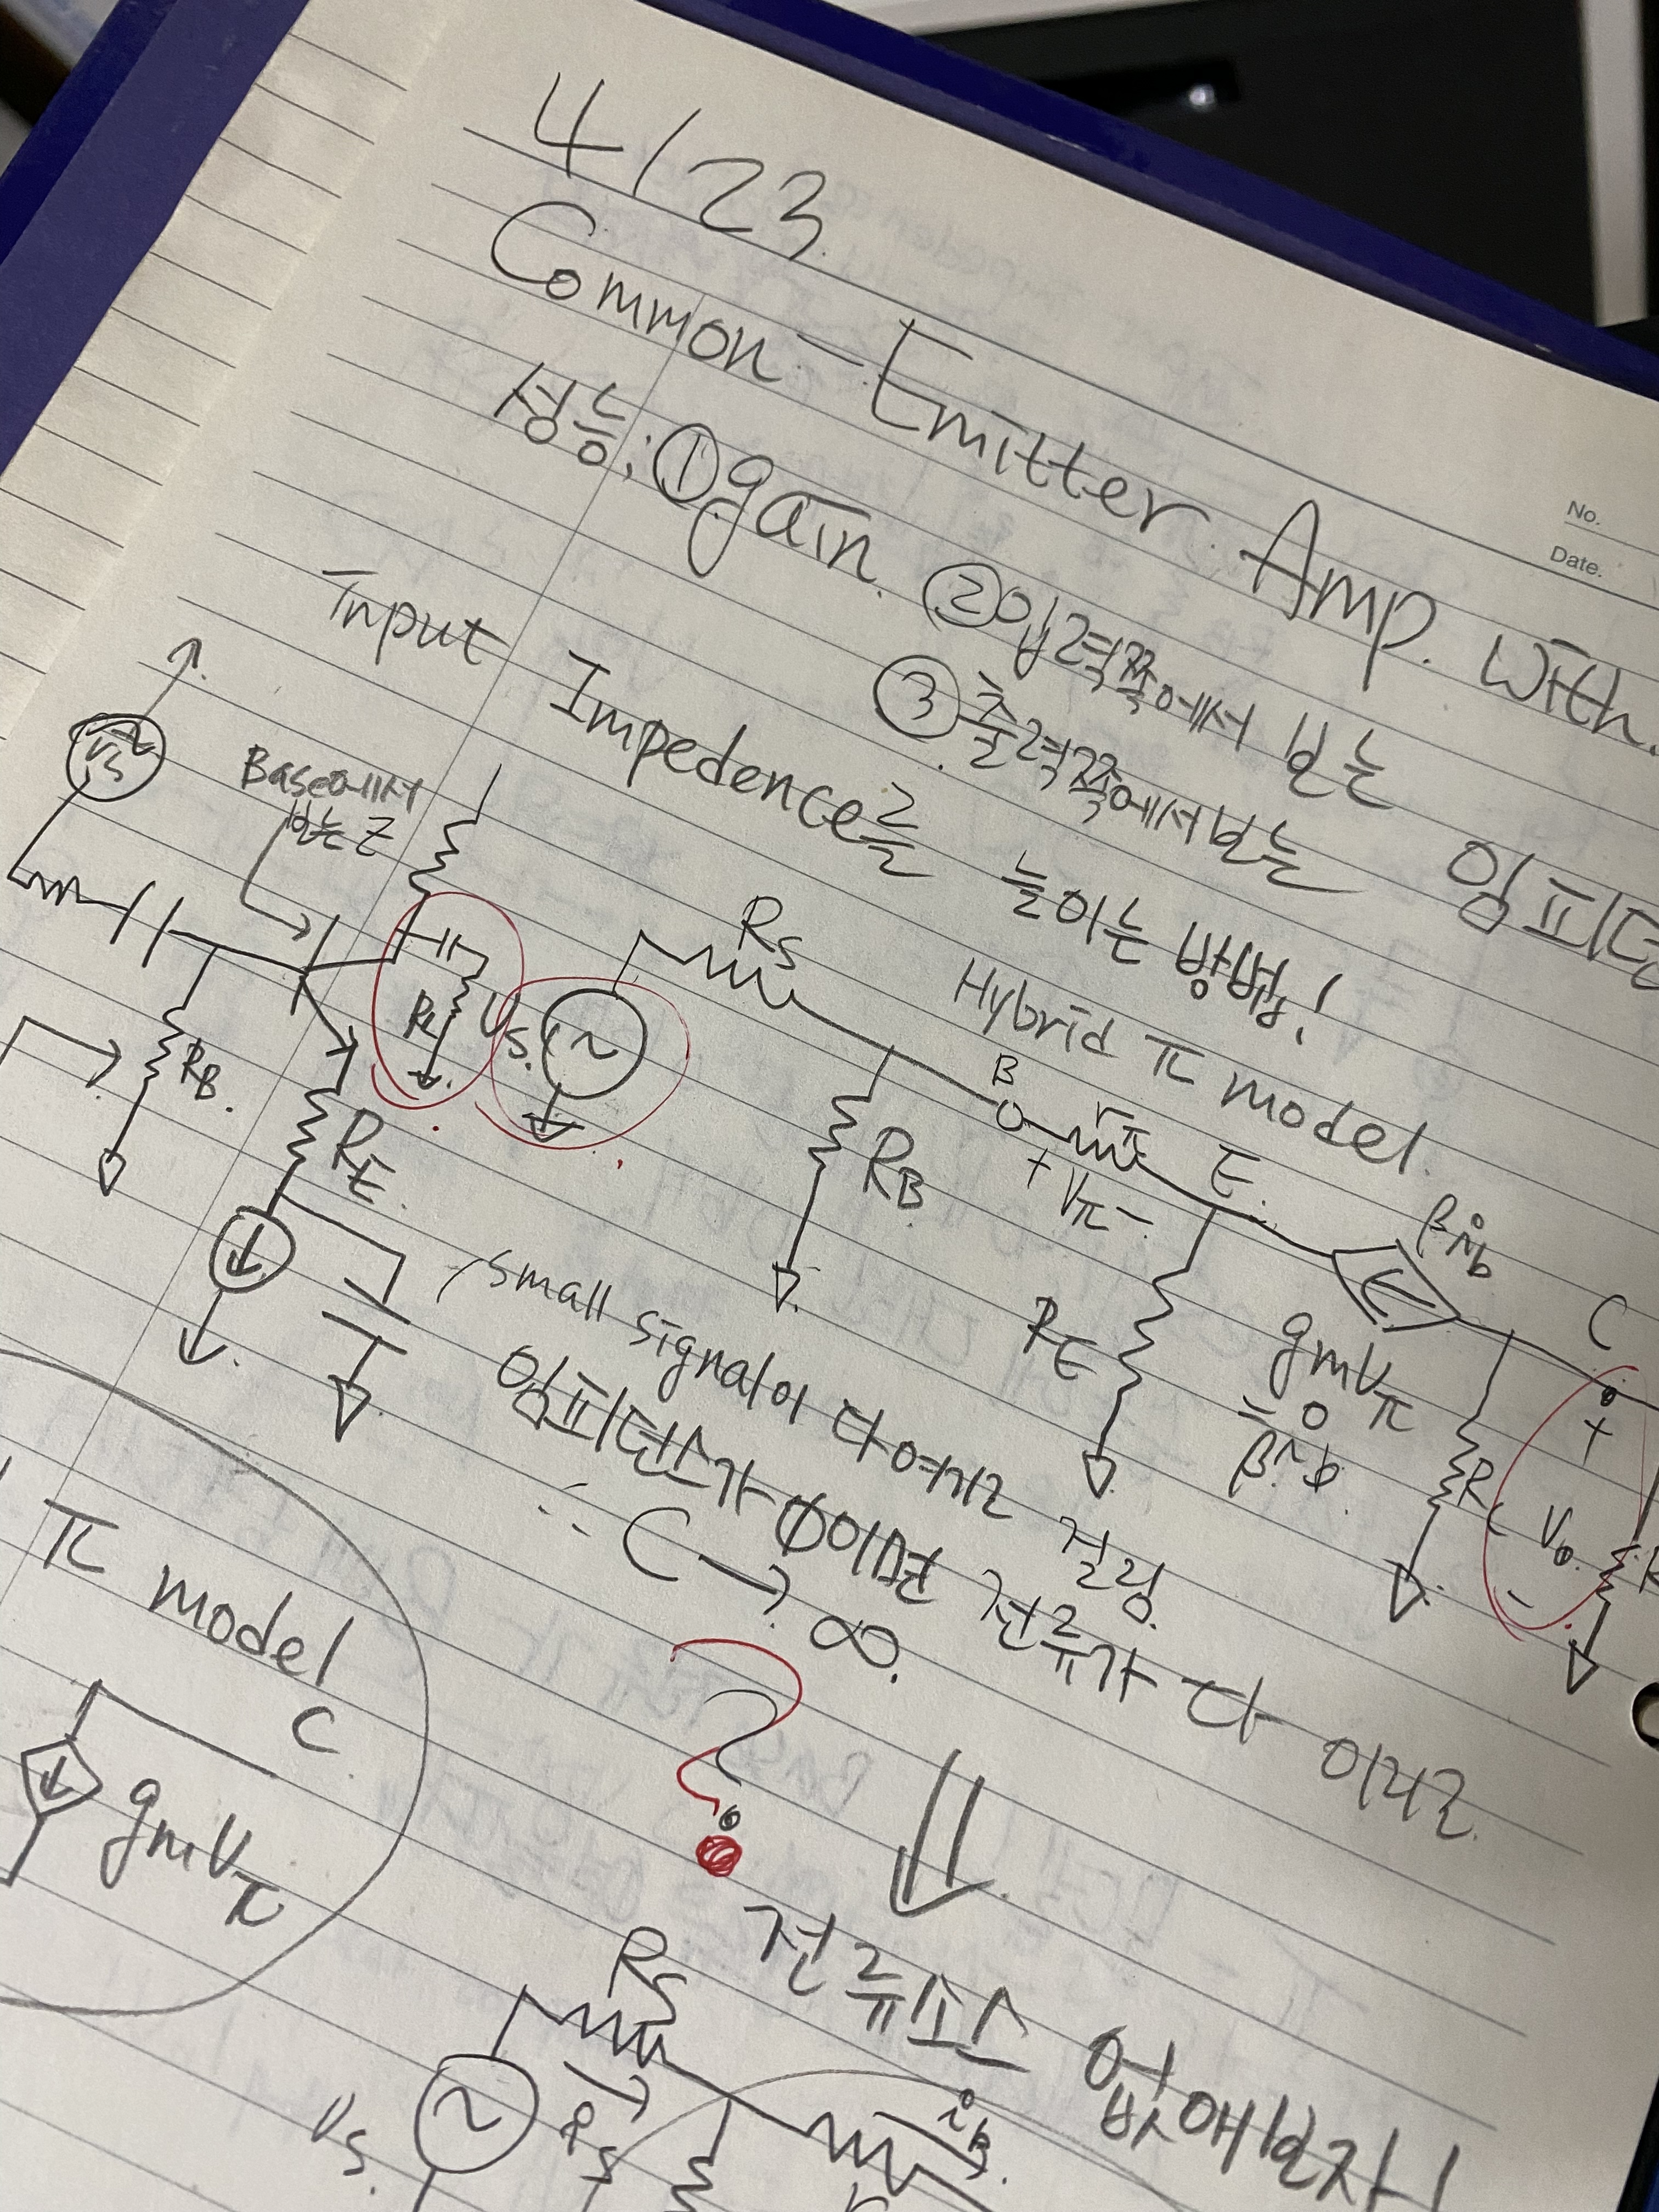 4/23
No.
Date.
Common-Emitter Amp. with
성능; ① gain. ② 입력쪽에서 보는 임피던
③ 출력쪽에서 보는
Input Impedence를 늘이는 방법!
Vs
Base에서
보는 Z
RB.
RE.
Hybrid π model.
Vs.
Rs
RB
B
rπ
+ Vπ -
E.
RE
βib
gmVπ
= βib.
C
Rc
+
Vo.
-
small signal이 다 여기로 걸림.
임피던스가 0이면 전류가 다 이리로
∴ C → ∞.
π model
C
gmVπ
?
⇓
전류소스 없애보자!
Rs
Vs.
is
iB.